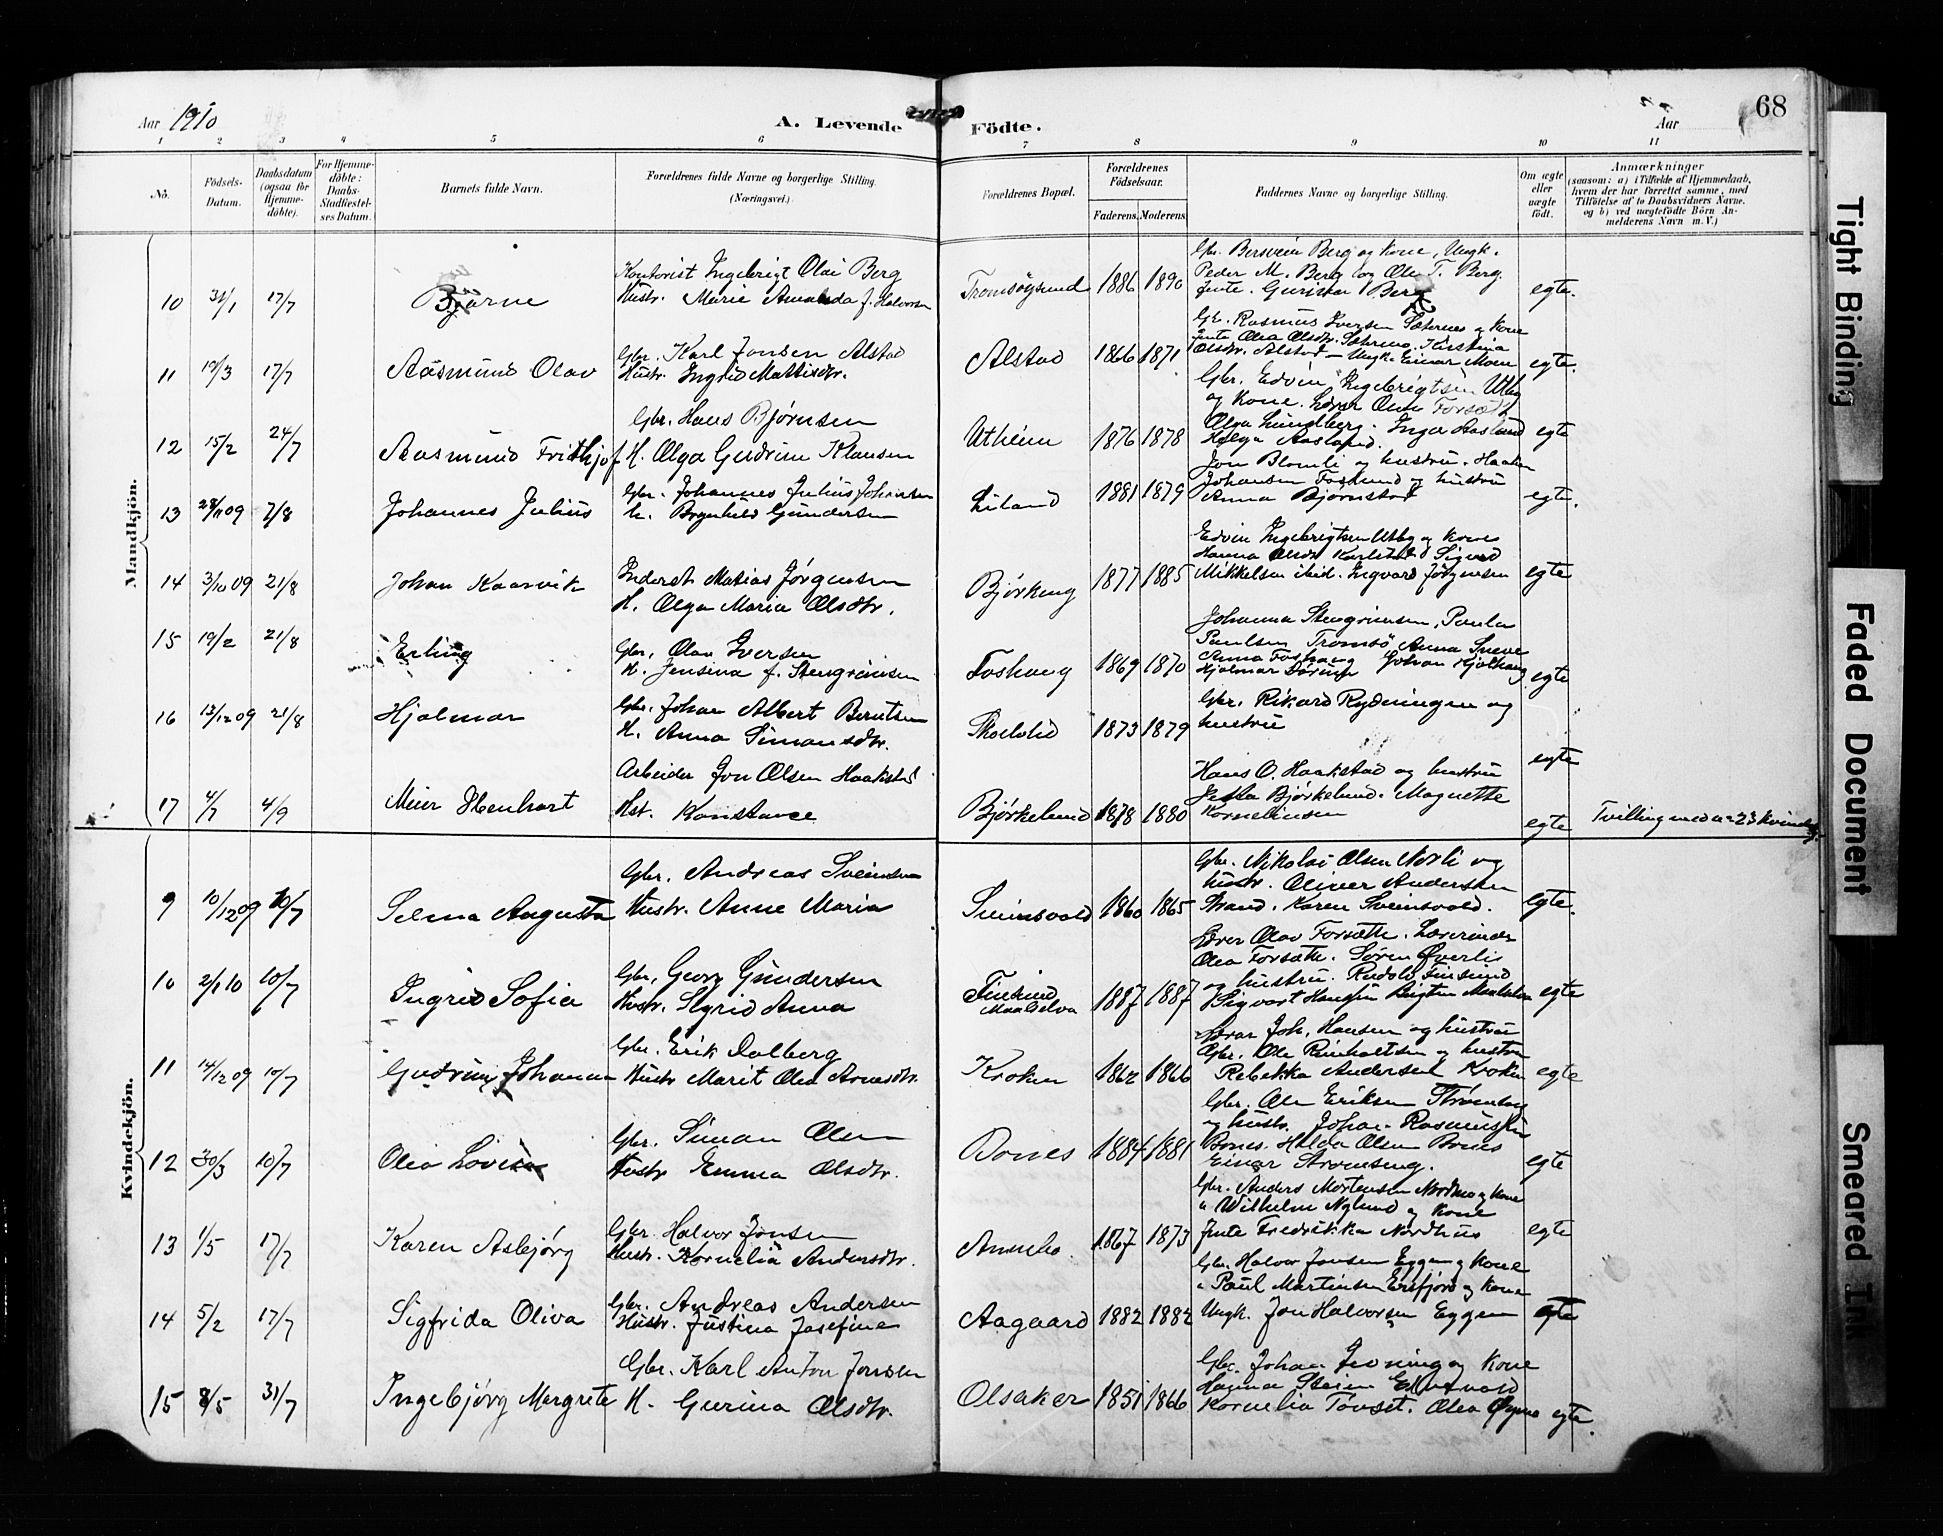 Aar 1910
A. Levende Födte.
Aar
68
1 2 3 4 5 6 7 8 9 10 11
No.
Födsels-Datum.
Daabsdatum (ogsaa för Hjemme-döbte).
For Hjemme-döbte: Daabs-Stadfæstel-ses Datum.
Barnets fulde Navn.
Forældrenes fulde Navne og borgerlige Stilling. (Næringsvei.)
Forældrenes Bopæl.
Forældrenes Födselsaar.
Faderens. Moderens.
Faddernes Navne og borgerlige Stilling.
Om ægte eller uægte födt.
Anmærkninger
(saasom: a) i Tilfælde af Hjemmedaab, hvem der har forrettet samme, med Tilföielse af to Daabsvidners Navne. og b) ved uægtefödte Börn An-melderens Navn m. V.)
Mandkjön.
10 31/1 17/7 Bjarne
Kontorist Ingebrigt Olai Berg
Hustr. Marie Amanda f. Halvorsen
Tromsøysund 1886 1890
Gbr. Bersvein Berg og kone, Ungk.
Peder M. Berg og Ole T. Berg.
Jente. Guricka Berg
egte.
11 19/3 17/7 Aasmund Olav
Gbr. Karl Jonsen Alstad
Hustr. Ingrid Mattisdtr.
Alstad 1866 1871
Gbr. Rasmus Iversen Sæternes og kone
Jente Olea Olsdtr. Kirstina
Olsdtr. Alstad - Ungk. Einar Moen
egte.
12 15/2 24/7 Aasmund Fridthjof
Gbr. Hans Bjørnsen
H. Olga Gudrun Klausen
Utheim 1876 1878
Gbr. Edvin Ingebrigtsen Utby
og Kone. Lærer Olav Forsæth
Olga Lundberg. Inga Aasland
Helga Aasland.
egte
13 28/11 09 7/8 Johannes Julius
Gbr. Johannes Julius Johansen
h. Brynhild Gundersen
Liland 1881 1879
Jon Blomli og hustru. Haakon
Johansen Foslund og hustru
Anna Bjørnstad
egte.
14 3/10 09 21/8 Johan Kaarvik
Inderst Matias Jørgensen
H. Olga Maria Olsdtr.
Bjørkeng 1877 1885
Edvin Ingebrigtsen Utby og Kones
Hanna Olsdtr Karlstad Sigurd
Mikkelsen ibid. Ingvard Jørgensen
egte
15 19/2 21/8 Erling
Gbr. Olav Iversen
H. Jensina f. Stengrimsen
Foshaug 1869 1870
Johanna Stengrimsen, Paula
Paulsen Tromsö Anna Sneve
Anna Foshaug Johan Hjolhaug
Hjalmar
egte
16 13/12 09 21/8 Hjalmar
Gbr. Johan Albert Berntsen
H. Anna Simonsdtr.
1873 1879
Gbr. Rikard Rydningen og
hustru
egte
17 4/7 4/9 Meier Ebenhart
Arbeider Jon Olsen Haakstad
Hst. Konstance
Bjørkelund 1878 1880
Hans O. Haakstad og hustru
Bjørkelund. Magnette
Kornelinsen
egte
Tvilling med no 23 Kvindekj.
Kvindekjön.
9 10/12 09 10/7 Selma Augusta
Gbr. Andreas Sveinsen
Hustr. Anne Maria
Sveinsvold 1860 1865
Gbr. Nikolai Olsen Norli og
hustr. Oliver Andersen
Strand. Karen Sveinsvold.
egte.
10 2/1 10 10/7 Ingrid Sofia
Gbr. Georg Gundersen
Hustr. Sigrid Anna
Finsund
Maalselva
1887 1887
Lærer Olav Forsæth. Lærerinde
Olea Forsæth. Søren Øverli
og hustru. Rudolf Finsund
Sigvart Hansen
egte
11 14/12 09 10/7 Gudrun Johanna
Gbr. Erik Dalberg
Hustr Marit Olea Arnesdtr.
Kroken 1862 1866
Lærer Joh. Hansen og hustru
Gbr. Ole Reinholtsen og hustru
Rebekka Andersen Kroken
egte
12 30/3 10/7 Olea Lovise
Gbr. Simon Olsen
Hustr Emma Olsdtr.
Bones 1884 1881
Gbr. Ole Eriksen Strømseng
og hustr. Johan Rasmussen
Bones. Hilda Olsen Bones
Einar Strømseng.
egte
13 1/5 17/7 Karen Asbjörg
Gbr. Halvor Jonsen
Hustr. Kornelia Andersdtr.
Annelo. 1867 1873
Gbr. Anders Mortensen Nordmo og kone
" Wilhelm Nylund og Kone
Jente Fredrikka Nordhus
egte
14 5/2 17/7 Sigfrida Oliva
Gbr. Andreas Andersen
Hustr. Justina Josefine
Aagaard 1882 1882
Gbr. Halvor Jonsen Eggen og kone
" Paul Martinsen Ersfjord og Kone
Ungk. Jon Halvorsen Eggen
egte
15 8/5 31/7 Ingebjörg Margrete
Gbr. Karl Anton Jonsen
H. Gurina Olsdtr.
Olsaker 1851 1866
Gbr. Johan og Kone
Hagma Steien
Kornelia Tovset. Olea
egte
Tight Binding
Faded Document
Smeared Ink